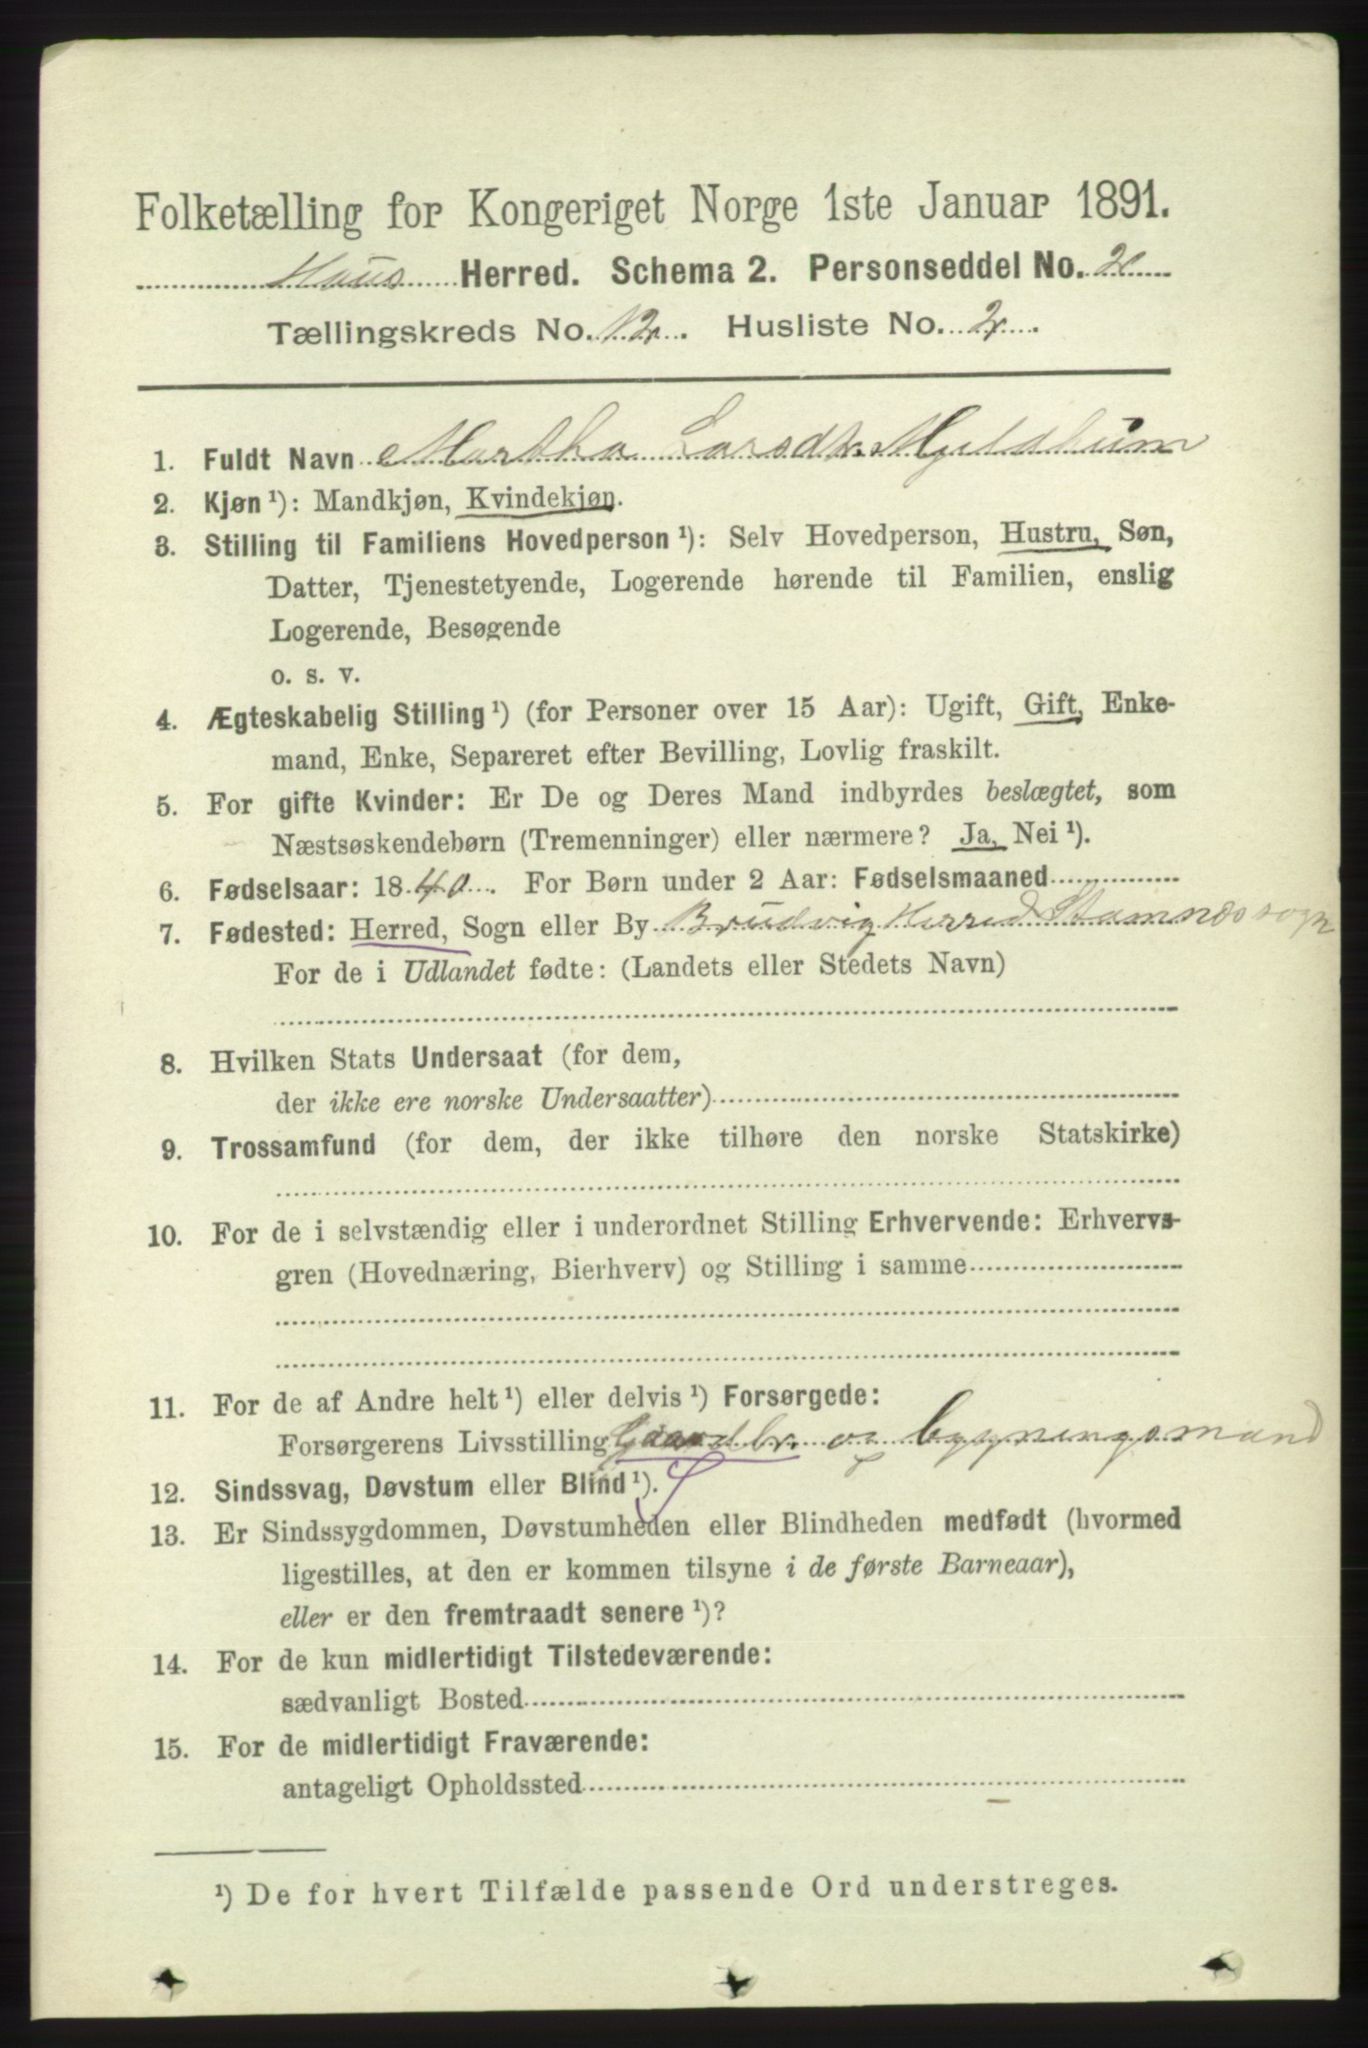 Folketælling for Kongeriget Norge 1ste Januar 1891.
Haus Herred. Schema 2. Personseddel No. 2
Tællingskreds No. 12. Husliste No. 2.
1. Fuldt Navn Martha Larsdtr. Mjeldhüm
2. Kjøn ¹): Mandkjøn, Kvindekjøn.
3. Stilling til Familiens Hovedperson ¹): Selv Hovedperson, Hustru, Søn,
Datter, Tjenestetyende, Logerende hørende til Familien, enslig
Logerende, Besøgende
o. s. v.
4. Ægteskabelig Stilling ¹) (for Personer over 15 Aar): Ugift, Gift, Enke-
mand, Enke, Separeret efter Bevilling, Lovlig fraskilt.
5. For gifte Kvinder: Er De og Deres Mand indbyrdes beslægtet, som
Næstsøskendebørn (Tremenninger) eller nærmere? Ja, Nei ¹).
6. Fødselsaar: 1840. For Børn under 2 Aar: Fødselsmaaned
7. Fødested: Herred, Sogn eller By Brudvig Herred Stamnes sogn
For de i Udlandet fødte: (Landets eller Stedets Navn)
8. Hvilken Stats Undersaat (for dem,
der ikke ere norske Undersaatter)
9. Trossamfund (for dem, der ikke tilhøre den norske Statskirke)
10. For de i selvstændig eller i underordnet Stilling Erhvervende: Erhvervs-
gren (Hovednæring, Bierhverv) og Stilling i samme
11. For de af Andre helt ¹) eller delvis ¹) Forsørgede:
Forsørgerens Livsstilling Gaardbr. og bygningsmand
12. Sindssvag, Døvstum eller Blind ¹).
13. Er Sindssygdommen, Døvstumheden eller Blindheden medfødt (hvormed
ligestilles, at den er kommen tilsyne i de første Barneaar),
eller er den fremtraadt senere ¹)?
14. For de kun midlertidigt Tilstedeværende:
sædvanligt Bosted
15. For de midlertidigt Fraværende:
antageligt Opholdssted
¹) De for hvert Tilfælde passende Ord understreges.